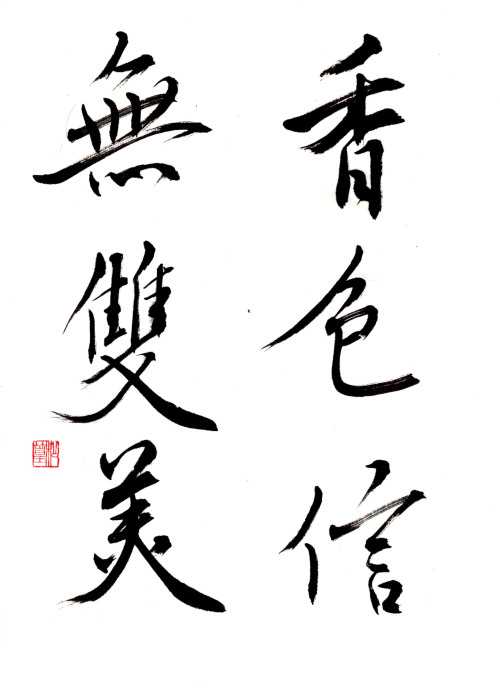 香色信
無雙美